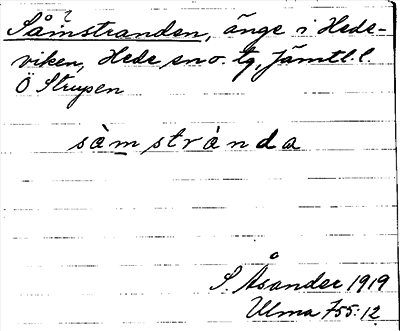 Såmstranden, änge i Hede-
viken, Hede sn o. tg, Jämtl. l.
Ö Strupen
såmstranda
S. Åsander 1919
Ulma 755:12